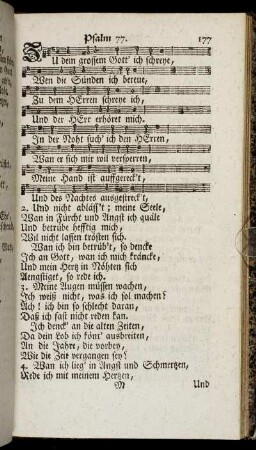 Psalm 77. 177
ZU dem grossem Gott' ich schreye,
Wen die Sünden ich bereue,
Zu dem HErren schreye ich,
Und der HErr erhöret mich.
In der Noht such' ich den HErren,
Wan er sich mir wil versperren,
Meine Hand ist aufgereck't,
Und des Nachtes ausgestreck't,
2. Und nicht abläss't; meine Seele,
Wan in Fürcht und Angst ich quäle
Und betrübe hefftig mich,
Wil nicht lassen trösten sich.
Wan ich bin betrüb't, so dencke
Ich an Gott, wan ich mich kräncke,
Und mein Hertz in Nöhten sich
Aengstiget, so rede ich.
3. Meine Augen müssen wachen,
Ich weiß nicht, was ich sol machen?
Ach! ich bin so schlecht daran,
Daß ich fast nicht reden kan.
Ich denck' an die alten Zeiten,
Da dein Lob ich könt' ausbreiten,
An die Jahre, die vorbey,
Wie die Zeit vergangen sey?
4. Wan ich lieg' in Angst und Schmertzen,
Rede ich mit meinem Hertzen,
M Und